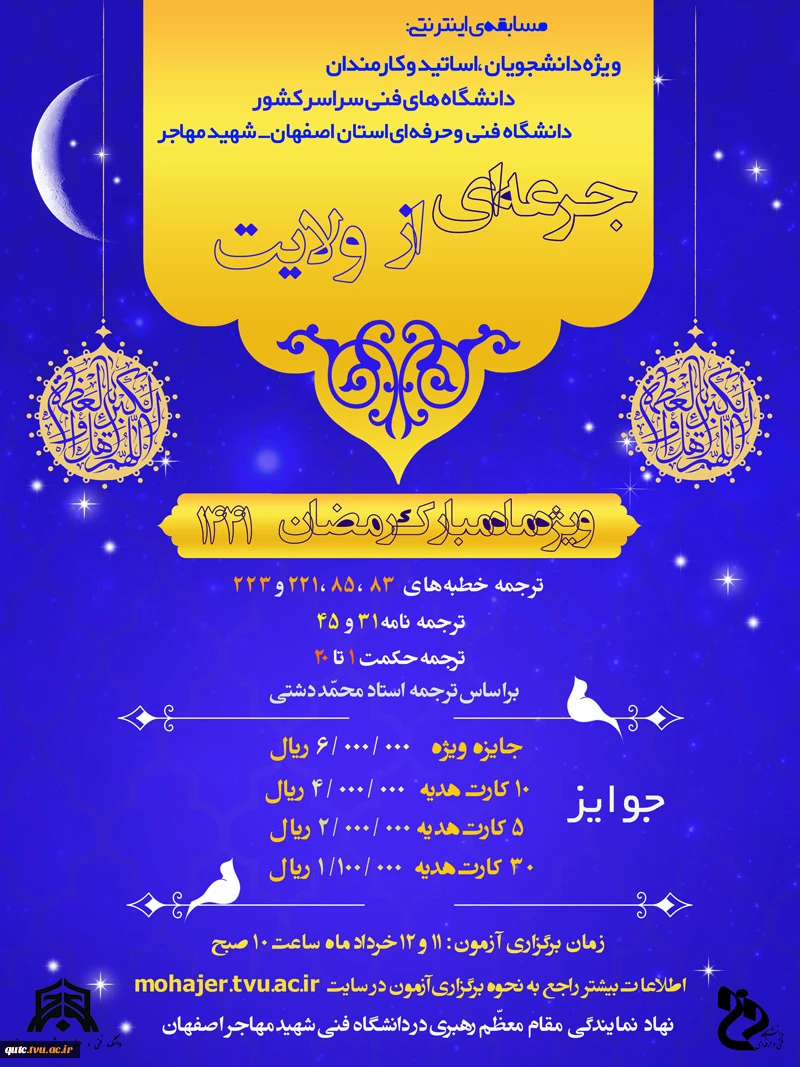 مسابقه‌ی اینترنتی:
ویژه دانشجویان ،اساتید و کارمندان
دانشگاه های فنی سراسر کشور
دانشگاه فنی و حرفه ای استان اصفهان_ شهید مهاجر
جرعه‌ای از ولایت
ویژه ماه مبارک رمضان ۱۴۴۱
ترجمه خطبه های ۸۳ ،۸۵ ،۲۲۱ و ۲۲۳
ترجمه نامه ۳۱ و ۴۵
ترجمه حکمت ۱ تا ۲۰
براساس ترجمه استاد محمّد دشتی
جوایز
جایزه ویژه ۶/۰۰۰/۰۰۰ ریال
۱۰ کارت هدیه ۴/۰۰۰/۰۰۰ ریال
۵ کارت هدیه ۲/۰۰۰/۰۰۰ ریال
۳۰ کارت هدیه ۱/۱۰۰/۰۰۰ ریال
زمان برگزاری آزمون: ۱۱ و ۱۲ خرداد ماه ساعت ۱۰ صبح
اطلاعات بیشتر راجع به نحوه برگزاری آزمون در سایت mohajer.tvu.ac.ir
نهاد نمایندگی مقام معظّم رهبری در دانشگاه فنی شهید مهاجر اصفهان
qutc.tvu.ac.ir